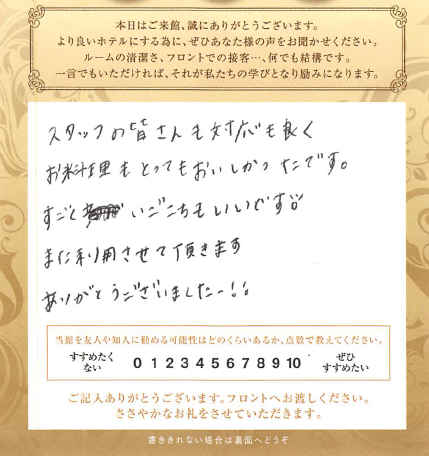 本日はご来館、誠にありがとうございます。
より良いホテルにする為に、ぜひあなた様の声をお聞かせください。
ルームの清潔さ、フロントでの接客…、何でも結構です。
一言でもいただければ、それが私たちの学びとなり励みになります。
スタッフの皆さんも対応も良く
お料理もとってもおいしかったです。
すごく いごこちもいいです
また利用させて頂きます
ありがとうございましたー!!
当館を友人や知人に勧める可能性はどのくらいあるか、点数で教えてください。
すすめたくない 0 1 2 3 4 5 6 7 8 9 10 ぜひすすめたい
ご記入ありがとうございます。フロントへお渡しください。
ささやかなお礼をさせていただきます。
書ききれない場合は裏面へどうぞ